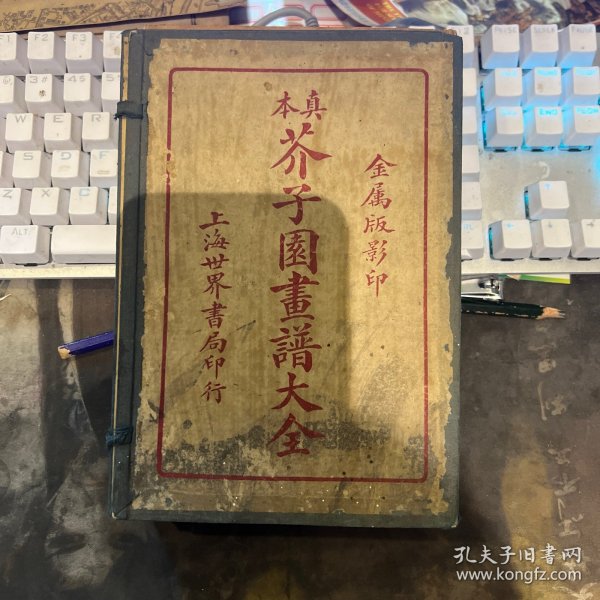 金属版影印
真本
芥子園畫譜大全
上海世界書局印行
孔夫子旧书网
www.kongfz.com